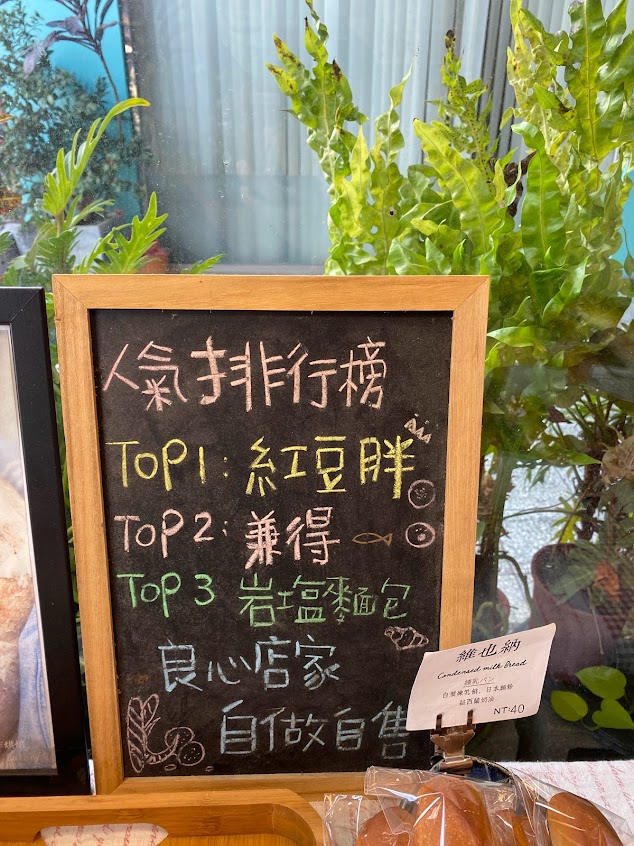 人氣排行榜
TOP1:紅豆胖
TOP2:兼得
TOP3 岩塩麵包
良心店家
自做自售
維也納
Condensed milk Bread
練乳パン
自製煉乳餡、日本麵粉
紐西蘭奶油
NT:40